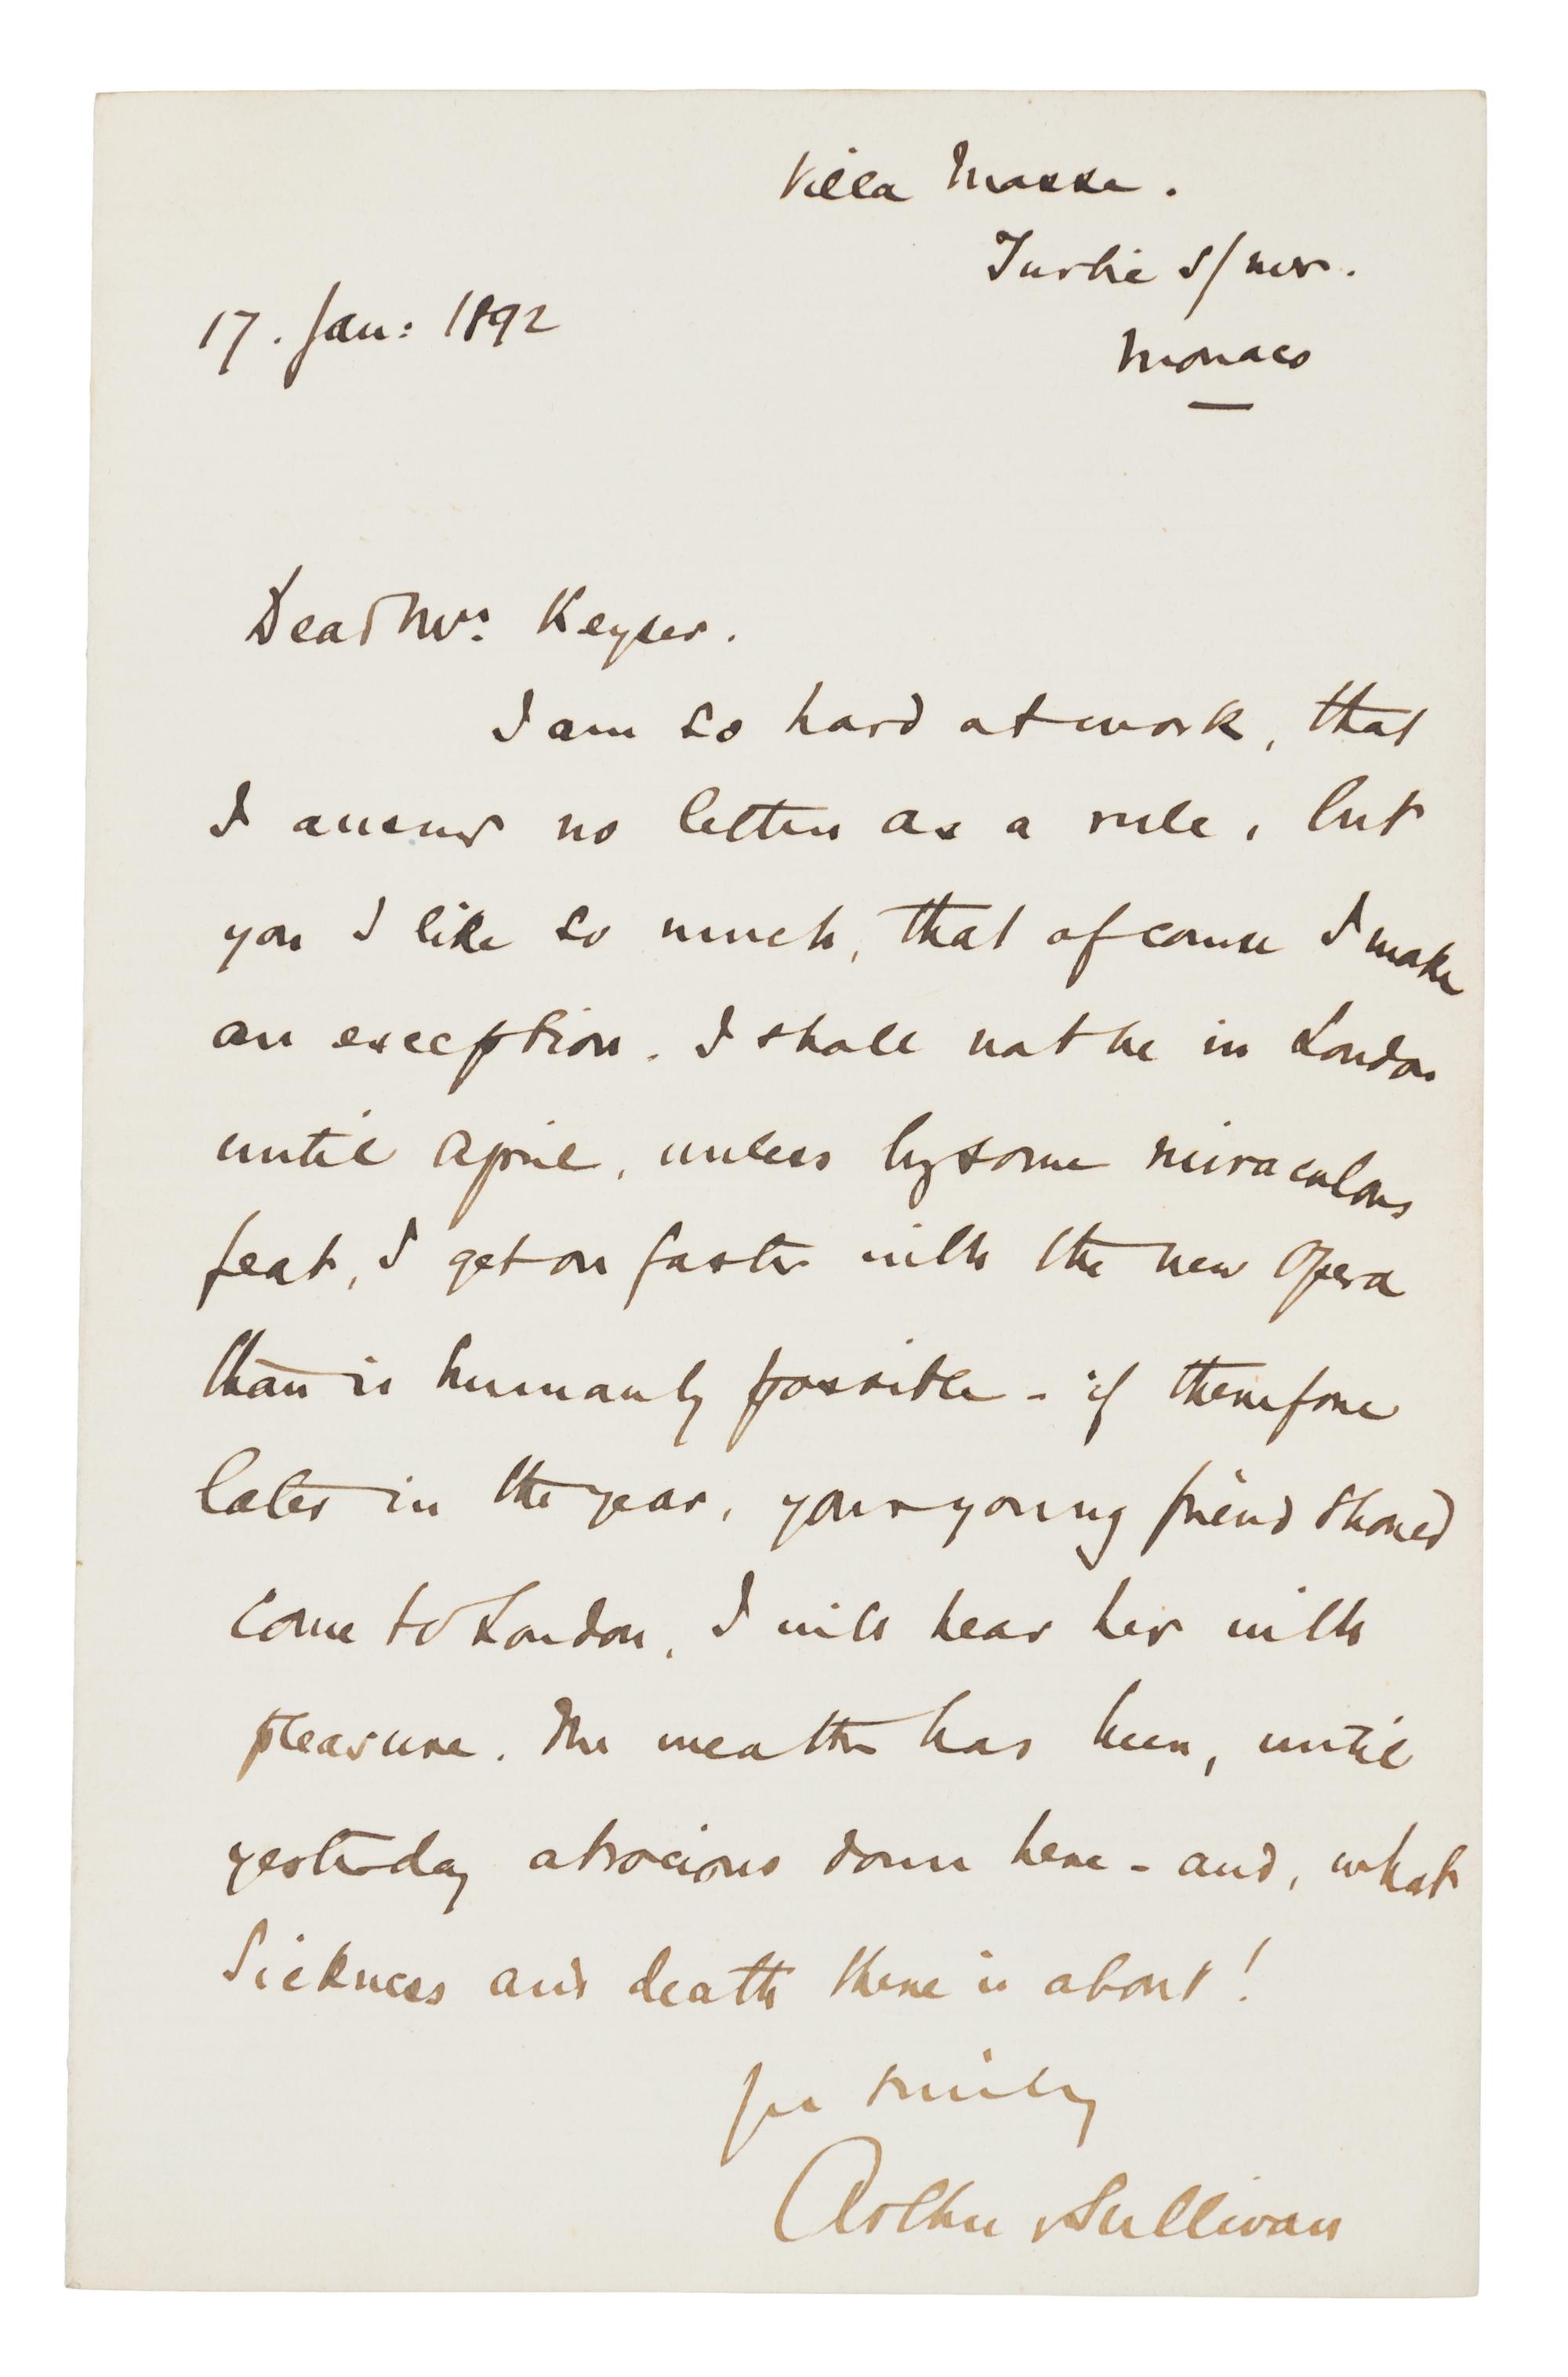 Villa Masse.
Turbie s/mer.
17. Jan: 1892
Monaco
Dear Mrs. Keyser.
I am so hard at work, that
I answer no letters as a rule, but
you I like so much, that of course I make
an exception. I shall not be in London
until April, unless by some miraculous
feat, I get on faster with the new Opera
than is humanly possible - if therefore
later in the year, your young friend should
come to London, I will hear her with
pleasure. The weather has been, until
yesterday atrocious down here - and, what
sickness and death there is about!
Yrs sincly
Arthur Sullivan